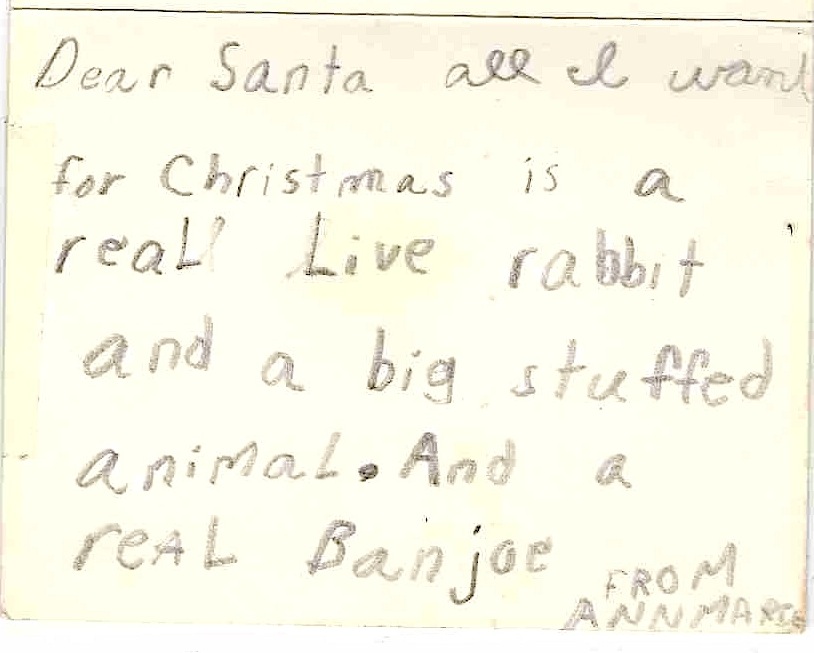 Dear Santa all I want
for Christmas is a
real Live rabbit
and a big stuffed
animal. And a
real Banjoe
FROM
ANNMARIE